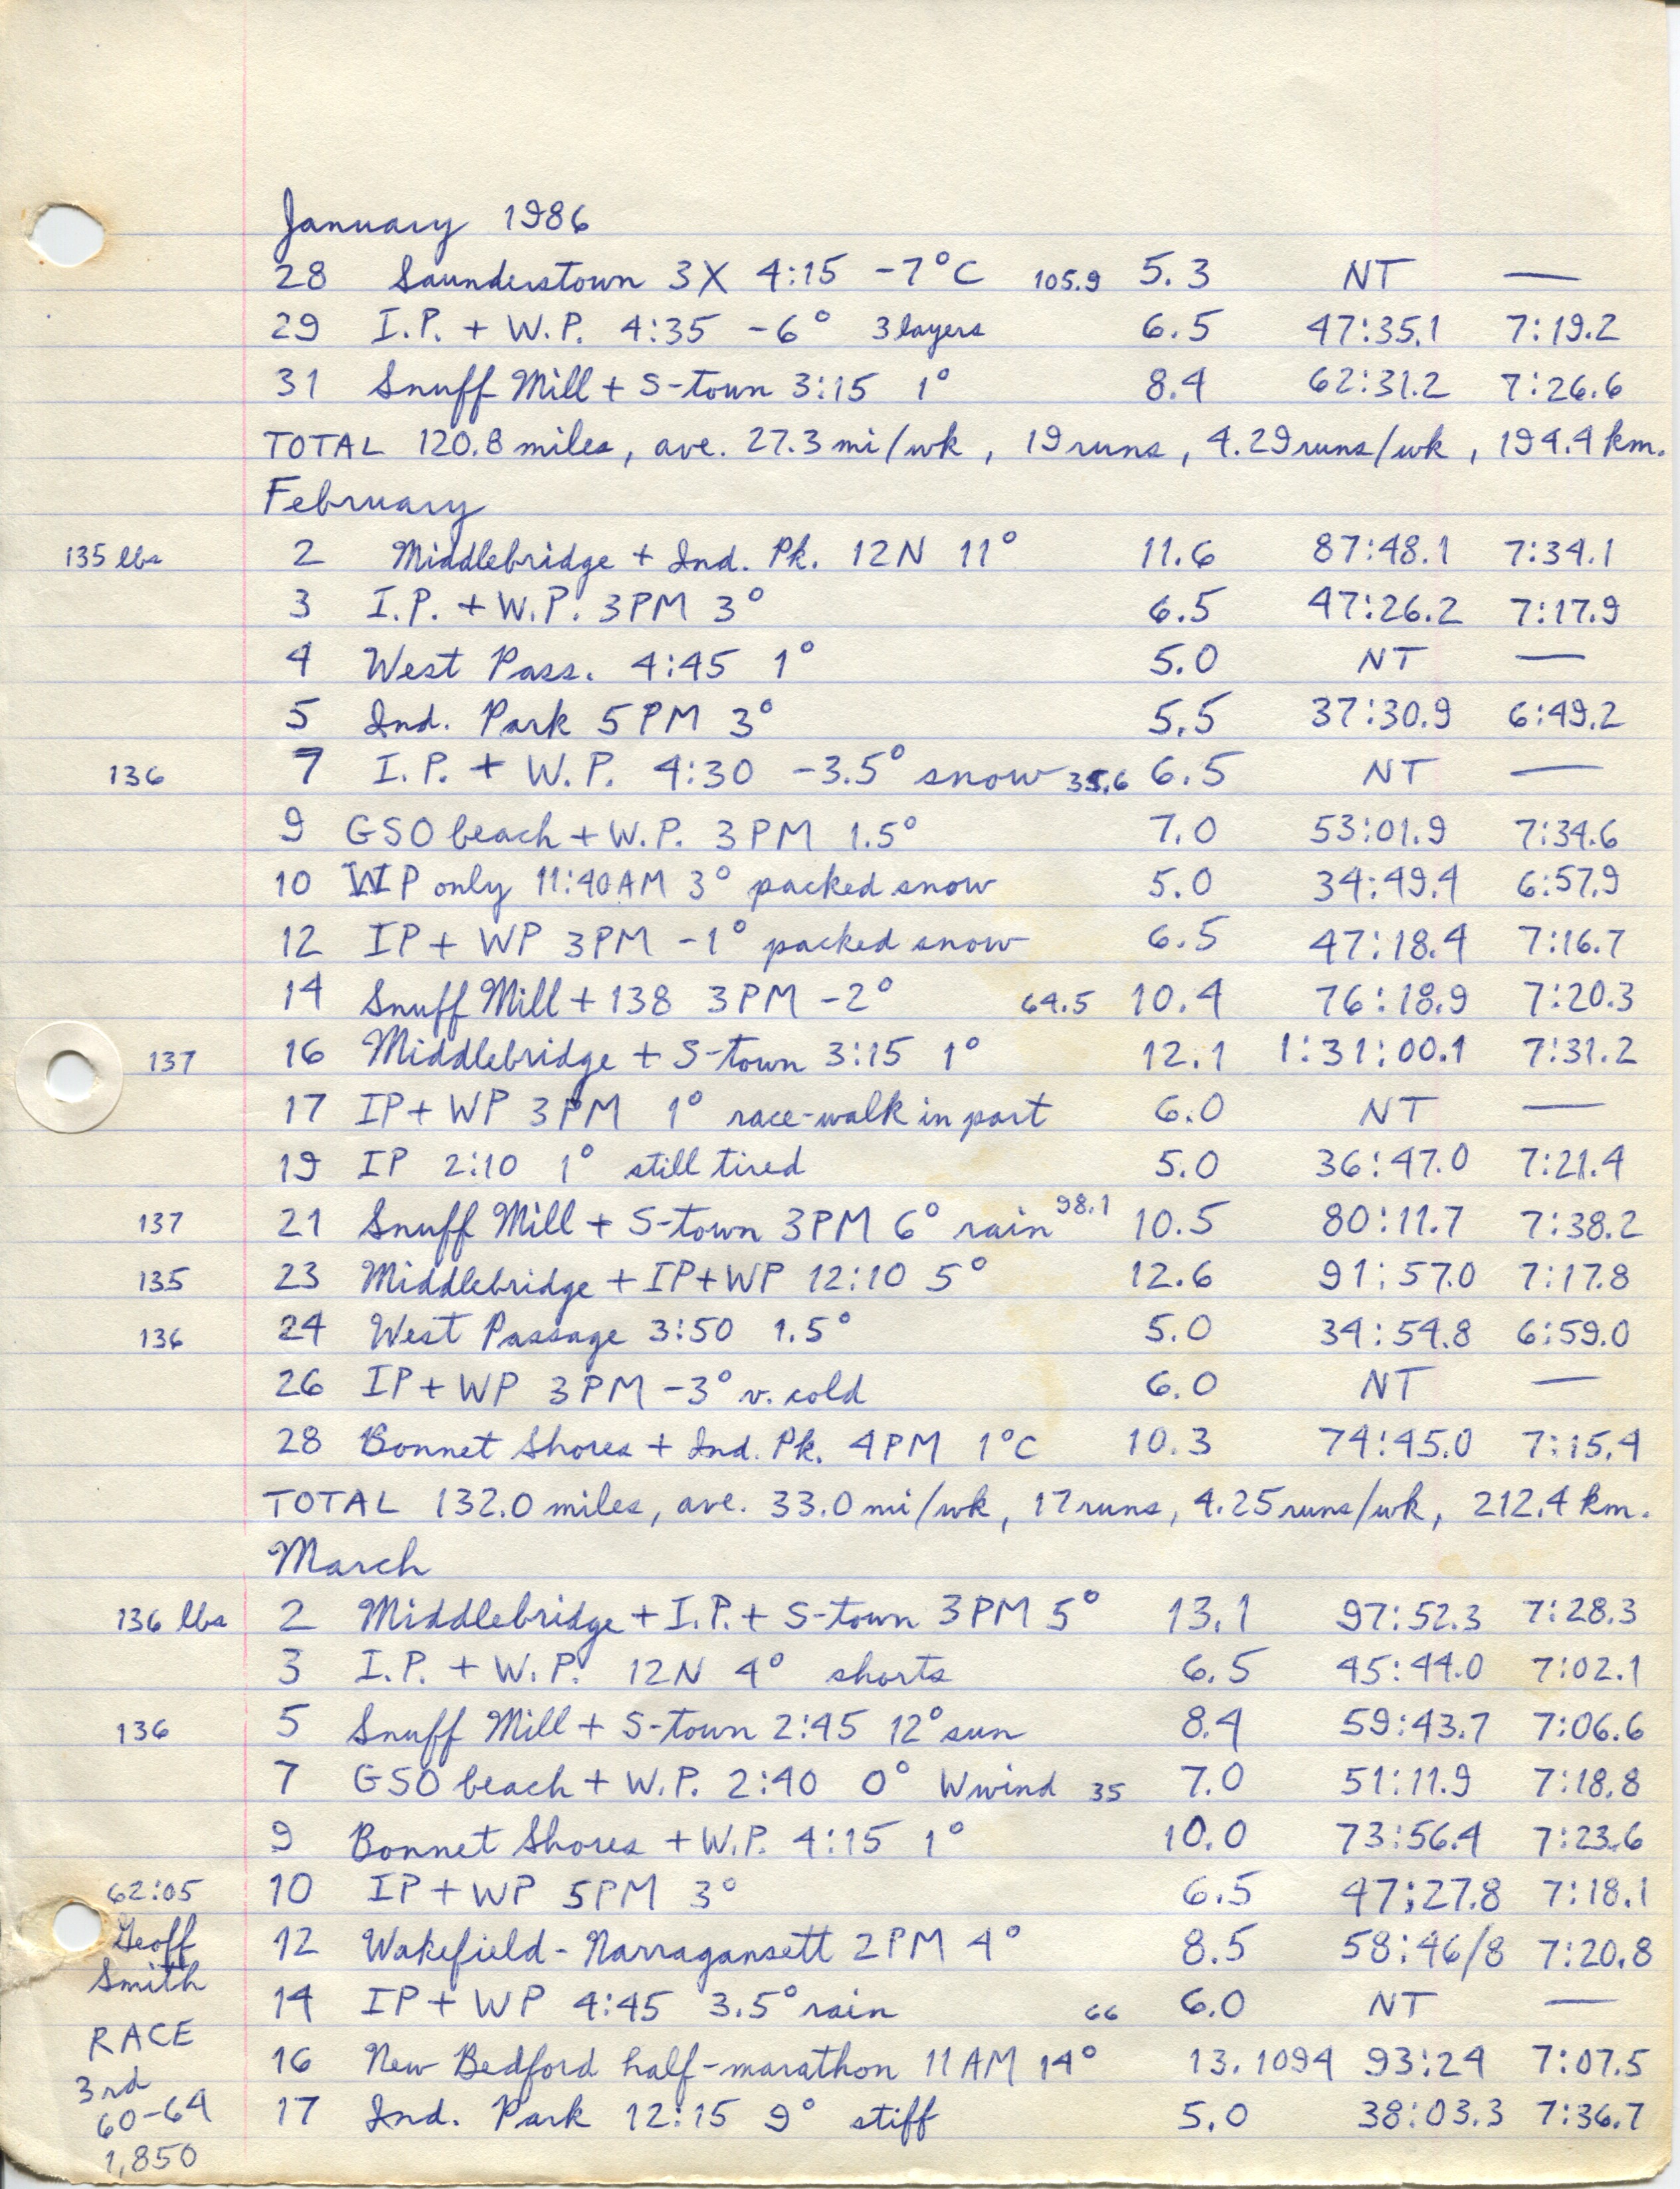 January 1986
28 Saunderstown 3X 4:15 -7°C 105.9 5.3 NT —
29 I.P. + W.P. 4:35 -6° 3 layers 6.5 47:35.1 7:19.2
31 Snuff Mill + S-town 3:15 1° 8.4 62:31.2 7:26.6
TOTAL 120.8 miles, ave. 27.3 mi/wk, 19 runs, 4.29 runs/wk, 194.4 km.
February
135 lbs 2 Middlebridge + Ind. Pk. 12N 11° 11.6 87:48.1 7:34.1
3 I.P. + W.P. 3PM 3° 6.5 47:26.2 7:17.9
4 West Pass. 4:45 1° 5.0 NT —
5 Ind. Park 5PM 3° 5.5 37:30.9 6:49.2
136 7 I.P. + W.P. 4:30 -3.5° snow 35.6 6.5 NT —
9 GSO beach + W.P. 3PM 1.5° 7.0 53:01.9 7:34.6
10 WP only 11:40AM 3° packed snow 5.0 34:49.4 6:57.9
12 IP + WP 3PM -1° packed snow 6.5 47:18.4 7:16.7
14 Snuff Mill + 138 3PM -2° 64.5 10.4 76:18.9 7:20.3
137 16 Middlebridge + S-town 3:15 1° 12.1 1:31:00.1 7:31.2
17 IP + WP 3PM 1° race-walk in part 6.0 NT —
19 IP 2:10 1° still tired 5.0 36:47.0 7:21.4
137 21 Snuff Mill + S-town 3PM 6° rain 98.1 10.5 80:11.7 7:38.2
135 23 Middlebridge + IP + WP 12:10 5° 12.6 91:57.0 7:17.8
136 24 West Passage 3:50 1.5° 5.0 34:54.8 6:59.0
26 IP + WP 3PM -3° v. cold 6.0 NT —
28 Bonnet Shores + Ind. Pk. 4PM 1°C 10.3 74:45.0 7:15.4
TOTAL 132.0 miles, ave. 33.0 mi/wk, 17 runs, 4.25 runs/wk, 212.4 km.
March
136 lbs 2 Middlebridge + I.P. + S-town 3PM 5° 13.1 97:52.3 7:28.3
3 I.P. + W.P. 12N 4° shorts 6.5 45:44.0 7:02.1
136 5 Snuff Mill + S-town 2:45 12° sun 8.4 59:43.7 7:06.6
7 GSO beach + W.P. 2:40 0° W wind 35 7.0 51:11.9 7:18.8
9 Bonnet Shores + W.P. 4:15 1° 10.0 73:56.4 7:23.6
62:05 10 IP + WP 5PM 3° 6.5 47:27.8 7:18.1
Geoff 12 Wakefield - Narragansett 2PM 4° 8.5 58:46/8 7:20.8
Smith
14 IP + WP 4:45 3.5° rain 66 6.0 NT —
RACE
16 New Bedford half-marathon 11AM 14° 13.1094 93:24 7:07.5
3rd
60-64 17 Ind. Park 12:15 9° stiff 5.0 38:03.3 7:36.7
1,850